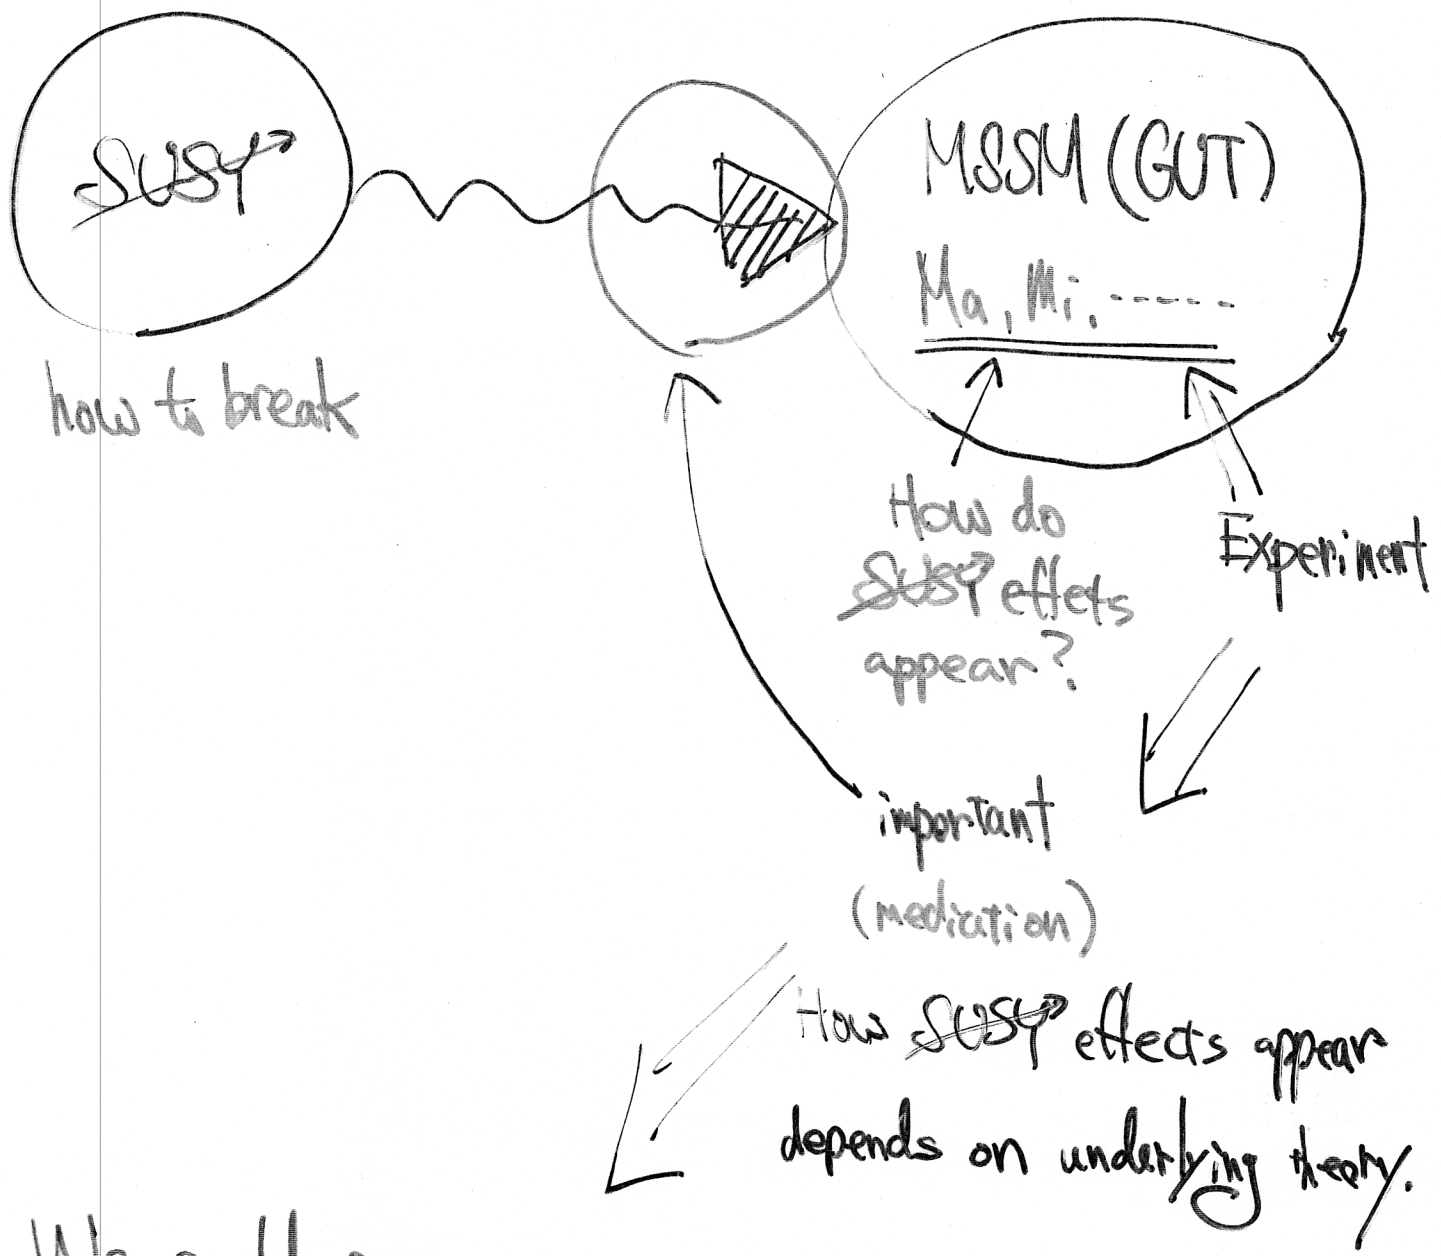 SUSY
MSSM (GUT)
Ma, Mi, ------
how to break
How do
SUSY effets
appear?
Experiment
important
(mediation)
How SUSY effects appear
depends on underlying theory.